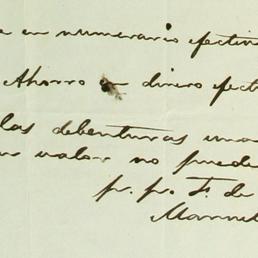 e en numerario efectiv
Ahorro en dinero efect
las debenturas una
valor no puede
p. p. F. de
Manuel